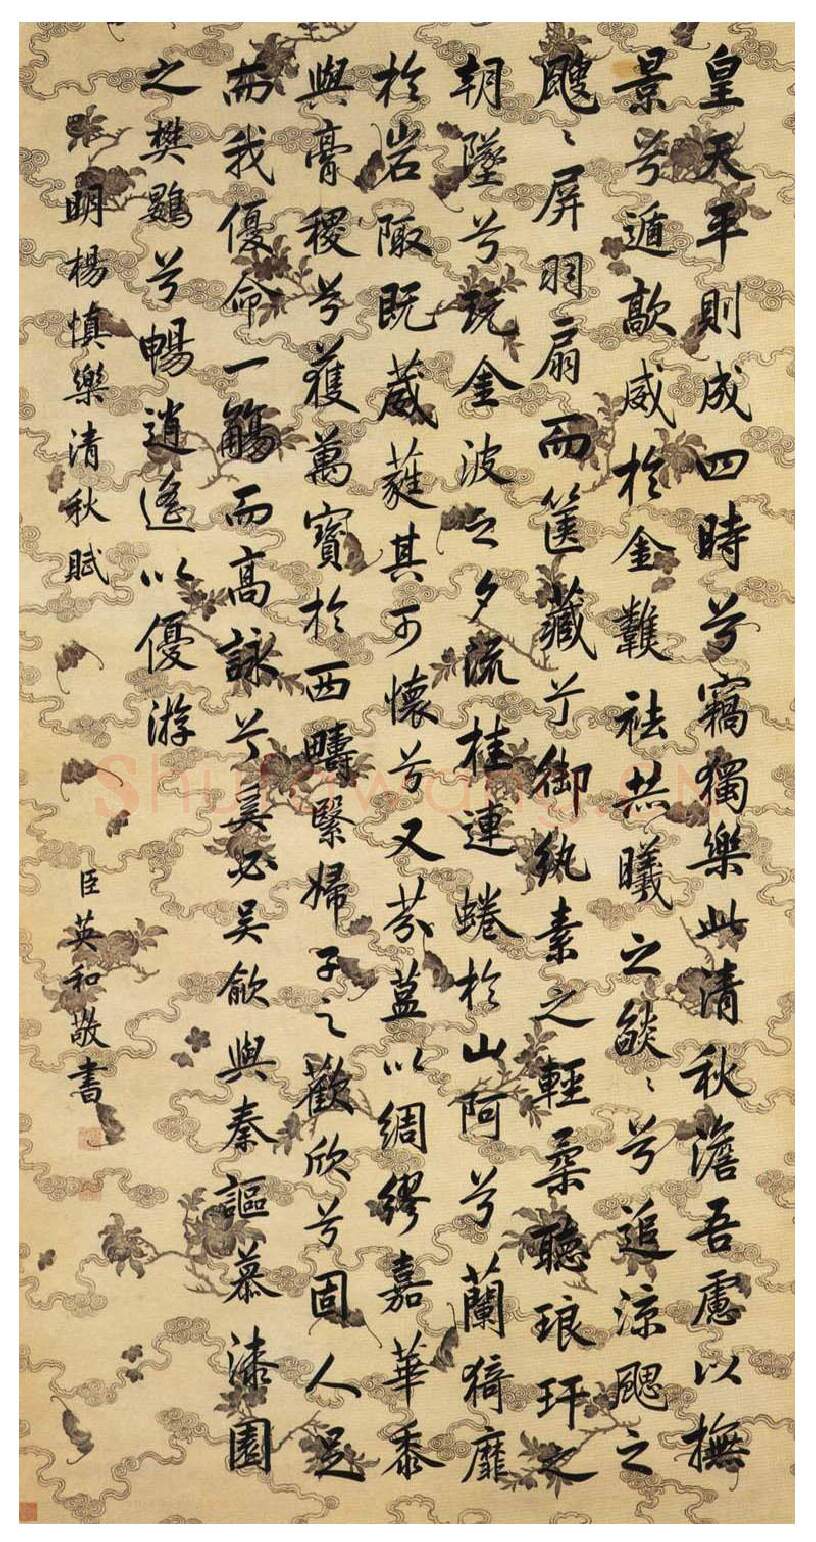 皇天平則成四時兮竊獨樂此清秋澹吾慮以撫
景兮遁歊威於金鸛祛其曦之燄〻兮追涼颸之
颼〻屏羽扇而篋藏兮御紈素之輕柔聽琅玕之
朝墜兮玩金波之夕流桂連蜷於山阿兮蘭猗靡
於岩陬既葳蕤其可懷兮又芬葐以綢繆嘉華黍
與膏稷兮獲萬寶於西疇緊婦子之歡欣兮固人足
而我優命一觴而高詠兮奚必吴歈與秦謳慕漆園
之樊鷃兮暢逍遙以優游
明楊慎樂清秋賦
臣英和敬書
Shufawang.CN